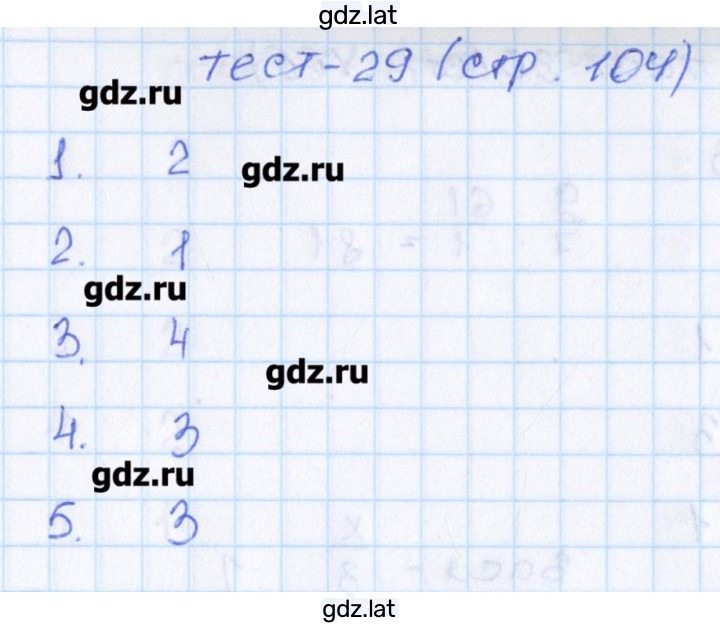 gdz.lat
тест-29 (стр. 104)
gdz.ru
1. 2
gdz.ru
2. 1
gdz.ru
3. 4
gdz.ru
4. 3
gdz.ru
5. 3
gdz.lat